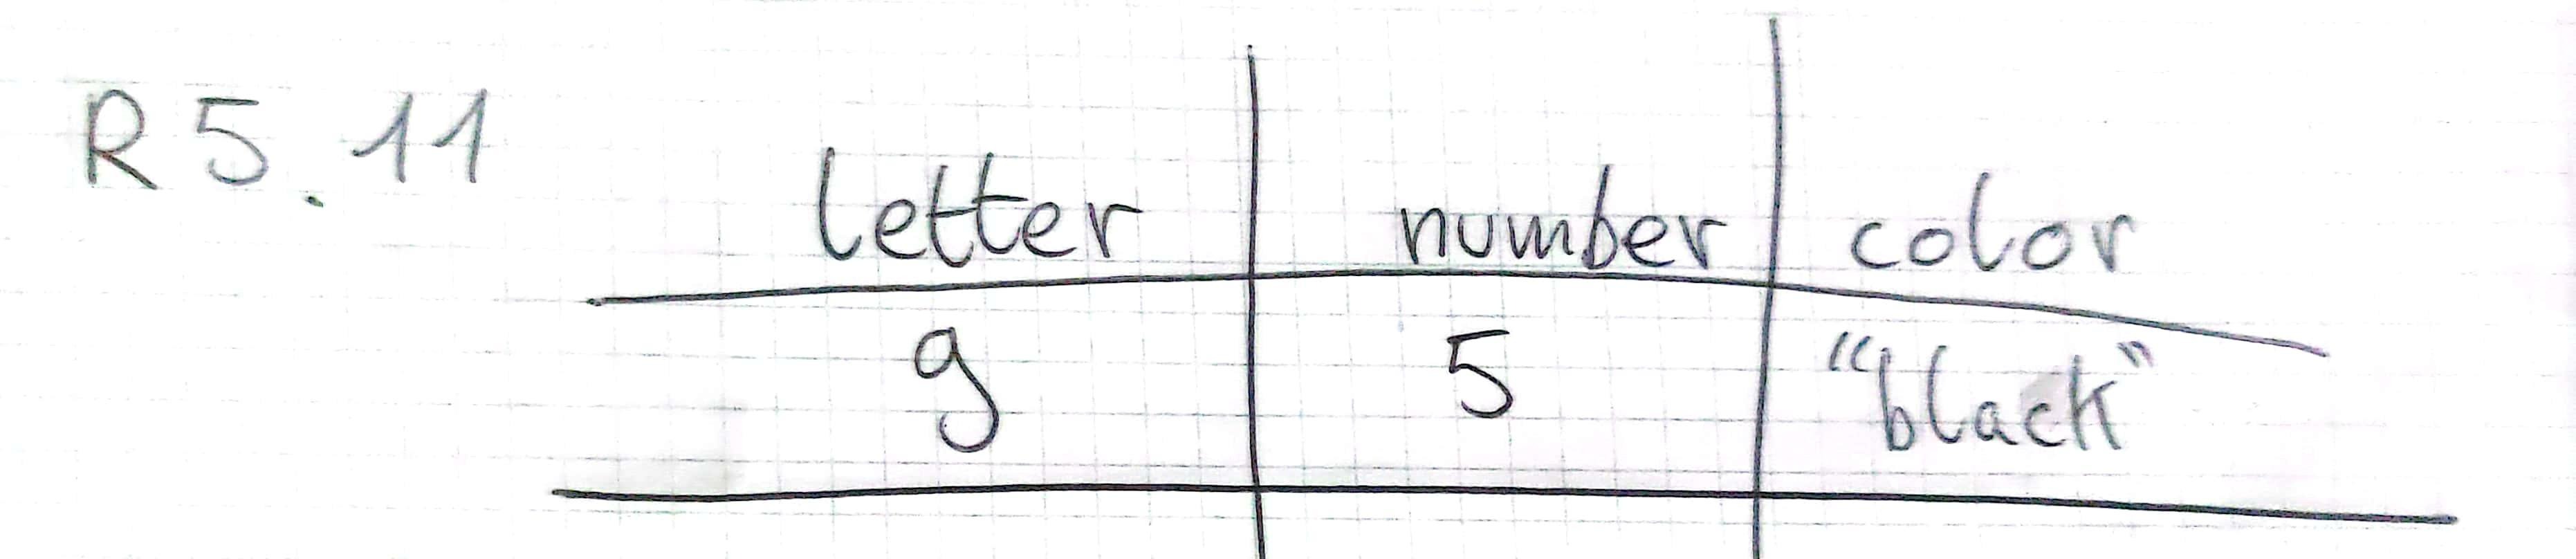 R5.11
letter number color
g 5 "black"